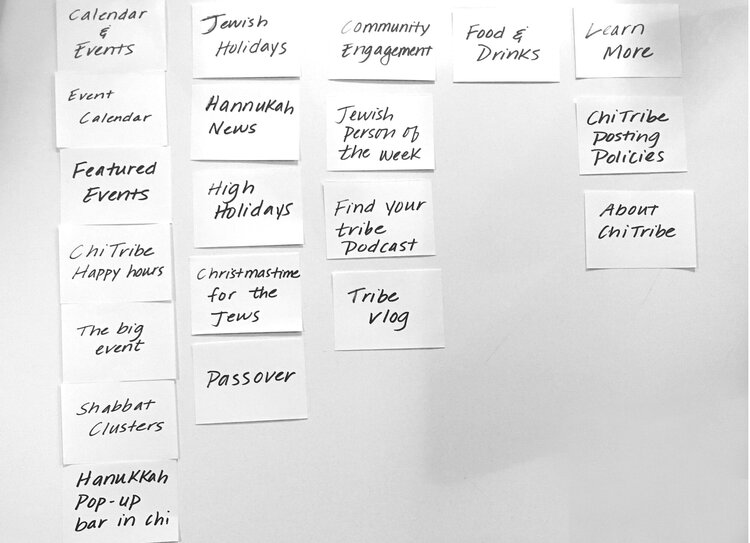 Calendar
&
Events
Event
Calendar
Featured
Events
ChiTribe
Happy hours
The big
event
Shabbat
Clusters
Hanukkah
Pop-up
bar in chi
Jewish
Holidays
Hannukah
News
High
Holidays
Christmastime
for the
Jews
Passover
Community
Engagement
Jewish
Person of
the week
Find your
tribe
Podcast
Tribe
vlog
Food &
Drinks
Learn
More
ChiTribe
Posting
Policies
About
ChiTribe